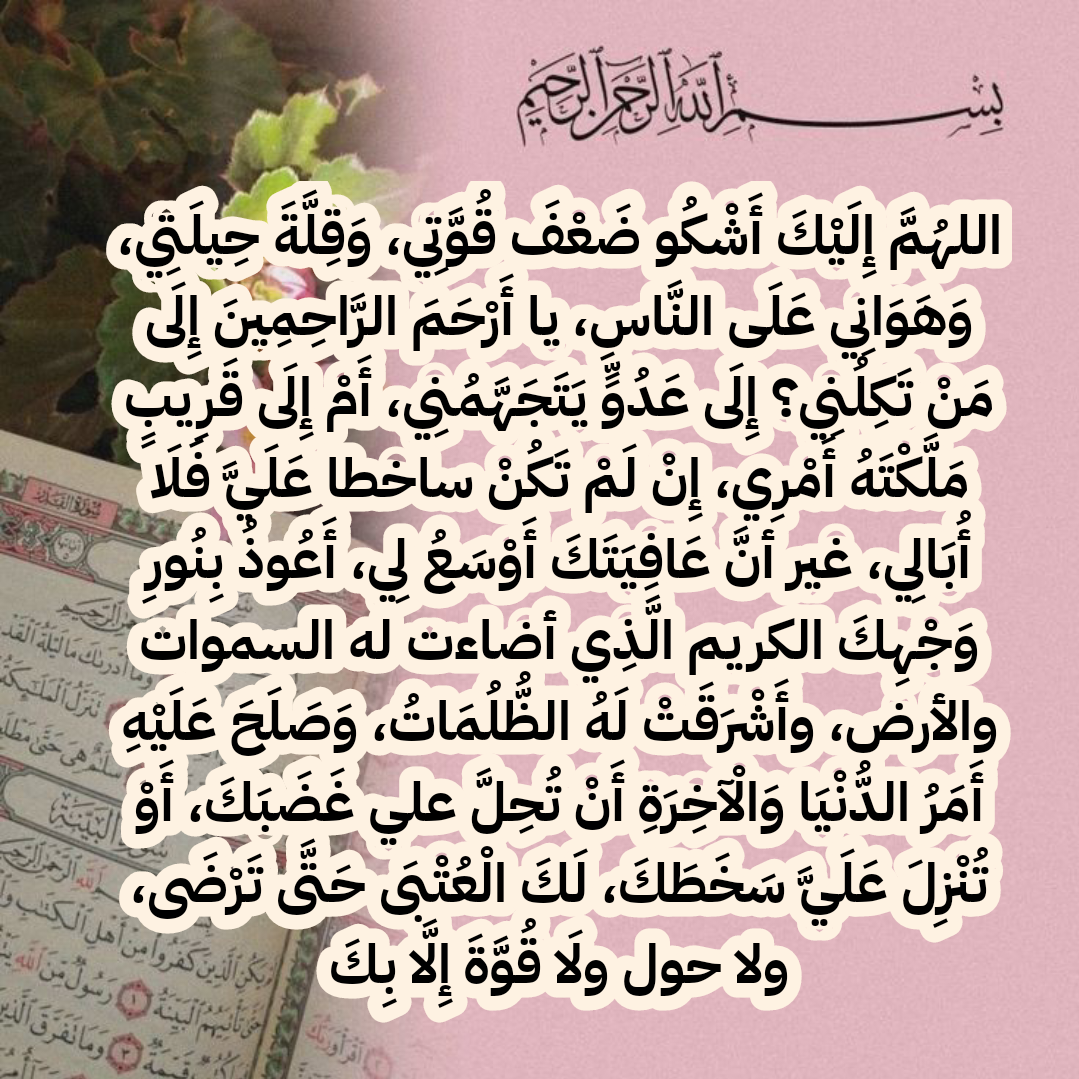 بِسْمِ اللَّهِ الرَّحْمَٰنِ الرَّحِيمِ
اللهُمَّ إِلَيْكَ أَشْكُو ضَعْفَ قُوَّتِي، وَقِلَّةَ حِيلَتِي،
وَهَوَانِي عَلَى النَّاسِ، يا أَرْحَمَ الرَّاحِمِينَ إِلَى
مَنْ تَكِلُنِي؟ إِلَى عَدُوٍّ يَتَجَهَّمُنِي، أَمْ إِلَى قَرِيبٍ
مَلَّكْتَهُ أَمْرِي، إِنْ لَمْ تَكُنْ ساخطا عَلَيَّ فَلَا
أُبَالِي، غير أنَّ عَافِيَتَكَ أَوْسَعُ لِي، أَعُوذُ بِنُورِ
وَجْهِكَ الكريم الَّذِي أضاءت له السموات
والأرض، وأَشْرَقَتْ لَهُ الظُّلُمَاتُ، وَصَلَحَ عَلَيْهِ
أَمَرُ الدُّنْيَا وَالْآخِرَةِ أَنْ تُحِلَّ علي غَضَبَكَ، أَوْ
تُنْزِلَ عَلَيَّ سَخَطَكَ، لَكَ الْعُتْبَى حَتَّى تَرْضَى،
ولا حول ولَا قُوَّةَ إِلَّا بِكَ